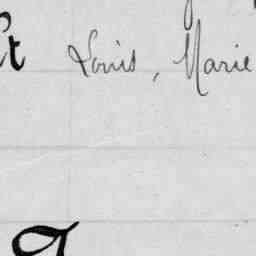 Et Louis, Marie